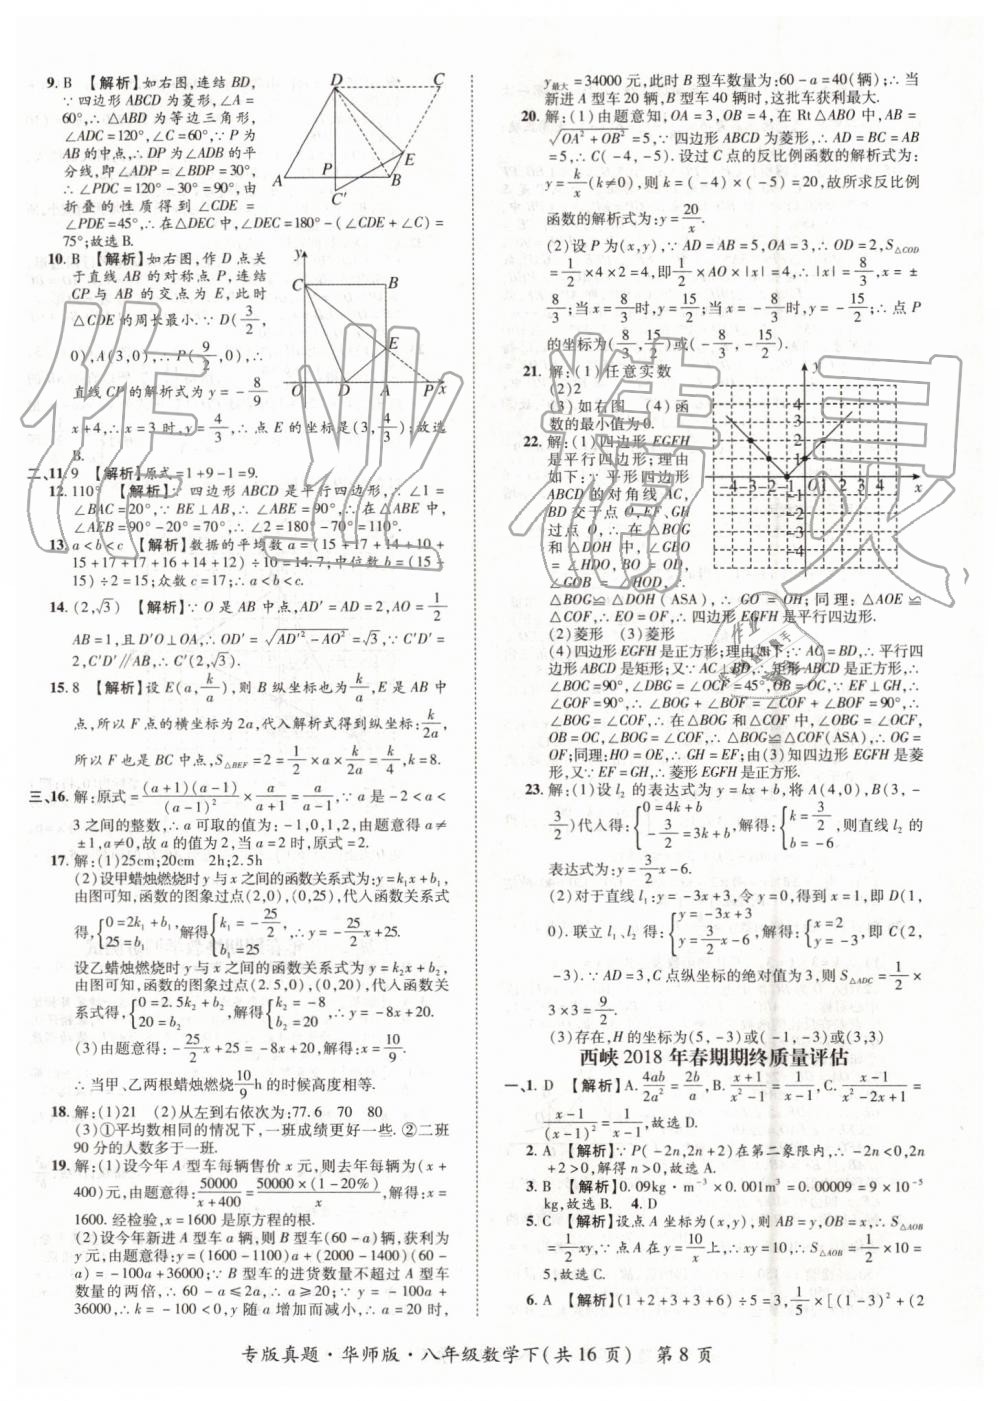 9. B 【解析】如右图,连结 BD,
∵四边形 ABCD 为菱形,∠A=
60°,∴△ABD 为等边三角形,
∠ADC=120°,∠C=60°,∵P 为
AB 的中点,∴DP 为∠ADB 的平
分线,即∠ADP=∠BDP=30°,
∴∠PDC=120°-30°=90°,由
折叠的性质得到∠CDE=
∠PDE=45°,∴在△DEC 中,∠DEC=180°-(∠CDE+∠C)=
75°;故选 B.
D C
E
A B
C'
10. B 【解析】如右图,作 D 点关
于直线 AB 的对称点 P,连结
CP 与 AB 的交点为 E,此时
△CDE 的周长最小.∵D(3/2,
0),A(3,0),∴P(9/2,0),∴
直线 CP 的解析式为 y=-8/9
x+4,∴x=3 时,y=4/3,∴点 E 的坐标是(3,4/3);故选
B.
y
C B
E
O D A P x
二、11. 9 【解析】原式=1+9-1=9.
12. 110° 【解析】∵四边形 ABCD 是平行四边形,∴∠1=
∠BAC=20°,∵BE⊥AB,∴∠ABE=90°,∴在△ABE 中,
∠AEB=90°-20°=70°,∴∠2=180°-70°=110°.
13. a<b<c 【解析】数据的平均数 a=(15+17+14+10+
15+17+17+16+14+12)÷10=14.7;中位数 b=(15+
15)÷2=15;众数 c=17;∴a<b<c.
14. (2,√3) 【解析】∵O 是 AB 中点,AD'=AD=2,AO=1/2
AB=1,且 D'O⊥OA,∴OD'=√(AD'²-AO²)=√3,∵C'D'=
2,C'D'∥AB,∴C'(2,√3).
15. 8 【解析】设 E(a,k/a),则 B 纵坐标也为k/a,E 是 AB 中
点,所以 F 点的横坐标为 2a,代入解析式得到纵坐标:k/2a,
所以 F 也是 BC 中点,S△BEF=2=1/2×a×k/2a=k/4,k=8.
三、16. 解:原式=(a+1)(a-1)/(a-1)²×a/(a+1)=a/(a-1),∵a 是-2<a<
3 之间的整数,∴a 可取的值为:-1,0,1,2,由题意得 a≠
±1,a≠0,故 a 的值为 2,当 a=2 时,原式=2.
17. 解:(1)25cm;20cm 2h;2.5h
(2)设甲蜡烛燃烧时 y 与 x 之间的函数关系式为:y=k₁x+b₁,
由图可知,函数的图象过点(2,0),(0,25),代入函数关系式
得,{0=2k₁+b₁ 25=b₁,解得{k₁=-25/2 b₁=25,∴y=-25/2x+25.
设乙蜡烛燃烧时 y 与 x 之间的函数关系式为 y=k₂x+b₂,
由图可知,函数的图象过点(2.5,0),(0,20),代入函数关
系式得,{0=2.5k₂+b₂ 20=b₂,解得{k₂=-8 b₂=20,∴y=-8x+20.
(3)由题意得:-25/2x+25=-8x+20,解得:x=10/9.
∴当甲、乙两根蜡烛燃烧10/9h 的时候高度相等.
18. 解:(1)21 (2)从左到右依次为:77.6 70 80
(3)①平均数相同的情况下,一班成绩更好一些. ②二班
90 分的人数多于一班.
19. 解:(1)设今年 A 型车每辆售价 x 元,则去年每辆为(x+
400)元,由题意得:50000/(x+400)=50000×(1-20%)/x,解得:x=
1600. 经检验,x=1600 是原方程的根.
(2)设今年新进 A 型车 a 辆,则 B 型车(60-a)辆,获利为
y 元,由题意得:y=(1600-1100)a+(2000-1400)(60-
a)=-100a+36000;∵B 型车的进货数量不超过 A 型车
数量的两倍,∴60-a≤2a,∴a≥20;∵y=-100a+
36000,∴k=-100<0,y 随 a 增加而减小,∴a=20 时,
y最大=34000 元,此时 B 型车数量为:60-a=40(辆);∴当
新进 A 型车 20 辆,B 型车 40 辆时,这批车获利最大.
20. 解:(1)由题意知,OA=3,OB=4,在 Rt△ABO 中,AB=
√(OA²+OB²)=5,∵四边形 ABCD 为菱形,∴AD=BC=AB
=5,∴C(-4,-5). 设过 C 点的反比例函数的解析式为:
y=k/x(k≠0),则 k=(-4)×(-5)=20,故所求反比例
函数的解析式为:y=20/x.
(2)设 P 为(x,y),∵AD=AB=5,OA=3,∴OD=2,S△COD
=1/2×4×2=4,即1/2×AO×|x|=4,∴|x|=8/3,x=±
8/3;当 x=8/3时,y=15/2;当 x=-8/3时,y=-15/2;∴点 P
的坐标为(8/3,15/2)或(-8/3,-15/2).
21. 解:(1)任意实数
(2)2
(3)如右图 (4)函
数的最小值为 0.
y
4
3
2
1
-4 -3 -2 0 1 2 3 4 x
-1
-2
-3
-4
22. 解:(1)四边形 EGFH
是平行四边形;理由
如下:∵平行四边形
ABCD 的对角线 AC,
BD 交于点 O,EF,GH
过点 O,∴在△BOG
和△DOH 中,∠GBO
=∠HDO,BO=OD,
∠GOB=∠HOD,∴
△BOG≌△DOH(ASA),∴GO=OH;同理:△AOE≌
△COF,∴EO=OF,∴四边形 EGFH 是平行四边形.
(2)菱形 (3)菱形
(4)四边形 EGFH 是正方形;理由如下:∵AC=BD,∴平行四
边形 ABCD 是矩形;又∵AC⊥BD,∴矩形 ABCD 是正方形,∴
∠BOC=90°,∠DBG=∠OCF=45°,OB=OC,∵EF⊥GH,∴
∠GOF=90°,∴∠BOG+∠BOF=∠COF+∠BOF=90°,∴
∠BOG=∠COF,∴在△BOG 和△COF 中,∠OBG=∠OCF,
OB=OC,∠BOG=∠COF,∴△BOG≌△COF(ASA),∴OG=
OF;同理:HO=OE,∴GH=EF;由(3)知四边形 EGFH 是菱
形,又∵EF=GH,∴菱形 EGFH 是正方形.
23. 解:(1)设 l₂ 的表达式为 y=kx+b,将 A(4,0),B(3,-
3/2)代入得:{0=4k+b -3/2=3k+b,解得:{k=3/2 b=-6,则直线 l₂ 的
表达式为:y=3/2x-6.
(2)对于直线 l₁:y=-3x+3,令 y=0,得到 x=1,即 D(1,
0). 联立 l₁、l₂ 得:{y=-3x+3 y=3/2x-6,解得:{x=2 y=-3,即 C(2,
-3).∵AD=3,C 点纵坐标的绝对值为 3,则 S△ADC=1/2×
3×3=9/2.
(3)存在,H 的坐标为(5,-3)或(-1,-3)或(3,3)
西峡 2018 年春期期终质量评估
一、1. D 【解析】A.4ab/2a²=2b/a,B.(x+1)/(x²-1)=1/(x-1),C.(x-1)/(x²-2x+1)=
(x-1)/(x-1)²=1/(x-1),故选 D.
2. A 【解析】∵P(-2n,2n+2)在第二象限内,∴-2n<0,2n
+2>0,解得 n>0,故选 A.
3. B 【解析】0.09kg·m⁻³×0.001m³=0.00009=9×10⁻⁵
kg,故选 B. 4. D
5. C 【解析】设点 A 坐标为(x,y),则 AB=y,OB=x,∴S△AOB
=1/2xy,∵点 A 在 y=10/x上,∴xy=10,∴S△AOB=1/2×10=
5,故选 C.
6. A 【解析】(1+2+3+3+6)÷5=3,1/5×[(1-3)²+(2
专版真题·华师版·八年级数学下(共 16 页) 第 8 页
作业精灵